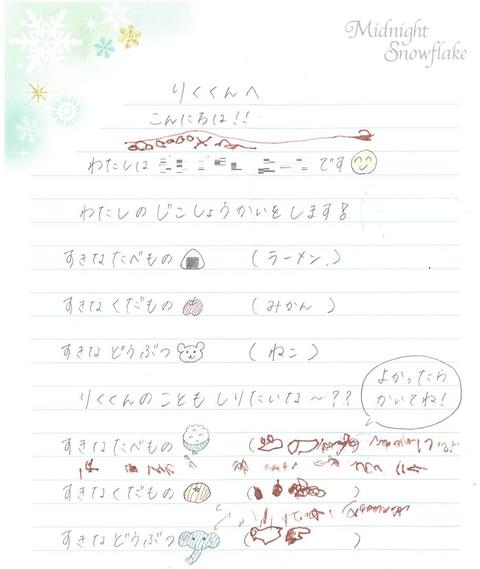 Midnight
Snowflake
りくくんへ
こんにちは!!
わたしは です
わたしのじこしょうかいをします
すきなたべもの (ラーメン)
すきなくだもの (みかん)
すきなどうぶつ (ねこ)
りくくんのことも しりたいな〜??
よかったら
かいてね!
すきなたべもの ( )
すきなくだもの ( )
すきなどうぶつ ( )